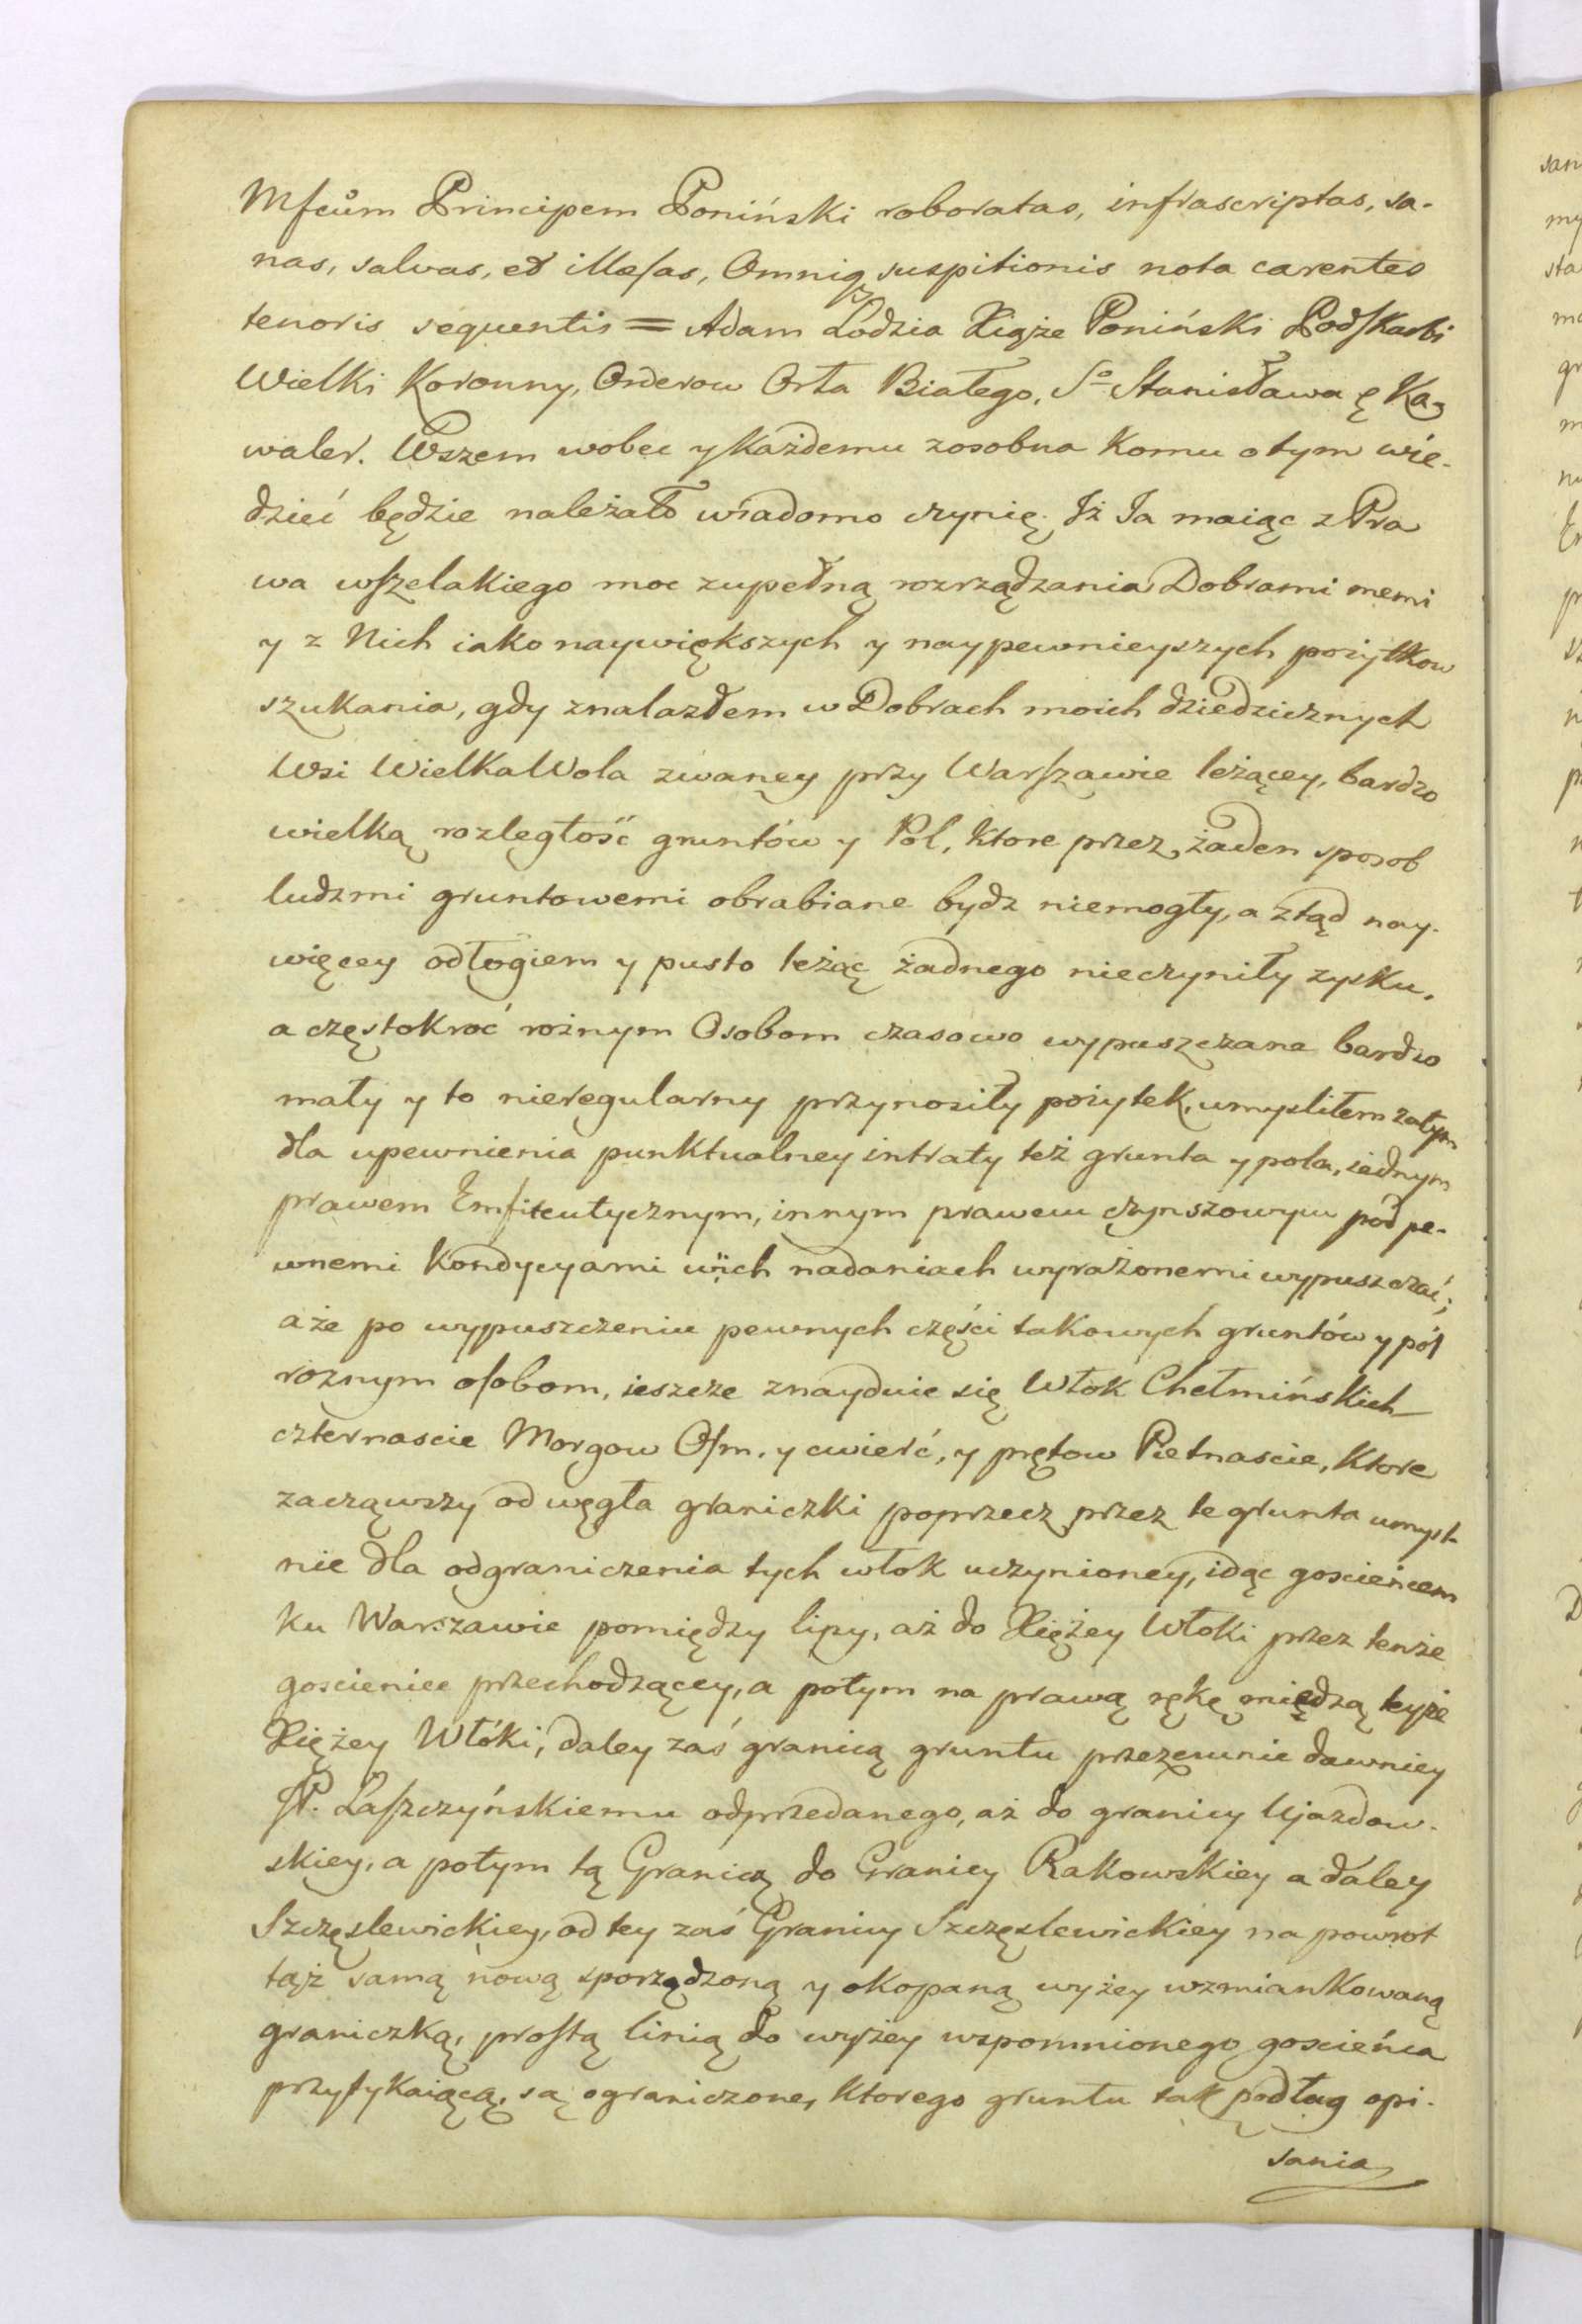 Mfcum Principem Poniński roboratas, infrascriptas, sa-
nas, salvas, et illæsas, Omniq suspitionis nota carentes
tenoris sequentis = Adam Lodzia Xiąże Poniński Podskarbi
Wielki Koronny, Orderow Orła Białego, So Stanisława & Ka-
waler. Wszem wobec y Każdemu zosobna Komu o tym wie-
dzieć będzie należało wiadomo czynię. Iż Ja maiąc z Pra
wa wszelakiego moc zupełną rozrządzania Dobrami memi
y z Nich iako naywiększych y naypewnieyszych pożytkow
szukania, gdy znalazłem w Dobrach moich dziedzicznych
Wsi Wielka Wola zwaney przy Warszawie leżącey, bardzo
wielką rozległość gruntów y Pol, ktore przez żaden sposob
ludzmi gruntowemi obrabiane bydz niemogły, a ztąd nay-
więcey odłogiem y pusto leżąc żadnego nieczyniły zysku,
a częstokroć rożnym Osobom czasowo wypuszczane bardzo
mały y to nieregularny przynosiły pożytek, umyśliłem zatym
dla upewnienia punktualney intraty też grunta y pola, iednym
prawem Emfiteutycznym, innym prawem czynszowym pod pe-
wnemi Kondycyami w ich nadaniach wyrażonemi wypuszczać;
a że po wypuszczeniu pewnych części takowych gruntów y pól
roznym osobom, ieszcze znayduie się Włok Chełmińskich
czternascie Morgow Osm, y cwierć, y prętow Pietnascie, Ktore
zacząwszy od węgła graniczki poprzecz przez te grunta umyśl-
nie dla odgraniczenia tych włok uczynioney, idąc gościeńcem
ku Warszawie pomiędzy lipy, aż do Xiężey Włoki przez tenże
goscieniec przechodzącey, a potym na prawą rękę miedzą teyże
Xiężey Włóki, daley zaś granicą gruntu przezemnie dawniey
JP. Laszczyńskiemu odprzedanego, aż do granicy Ujazdow-
skiey, a potym tą Granicą do Granicy Rakowskiey a daley
Szczęslewickiey, od tey zaś Granicy Szczęslewickiey na powrot
tąż samą nową sporządzoną y okopaną wyżey wzmiankowaną
graniczką, prostą linią do wyżey wspomnionego gościeńca
przytykaiącą, są ograniczone, Ktorego gruntu tak podług opi-
sania